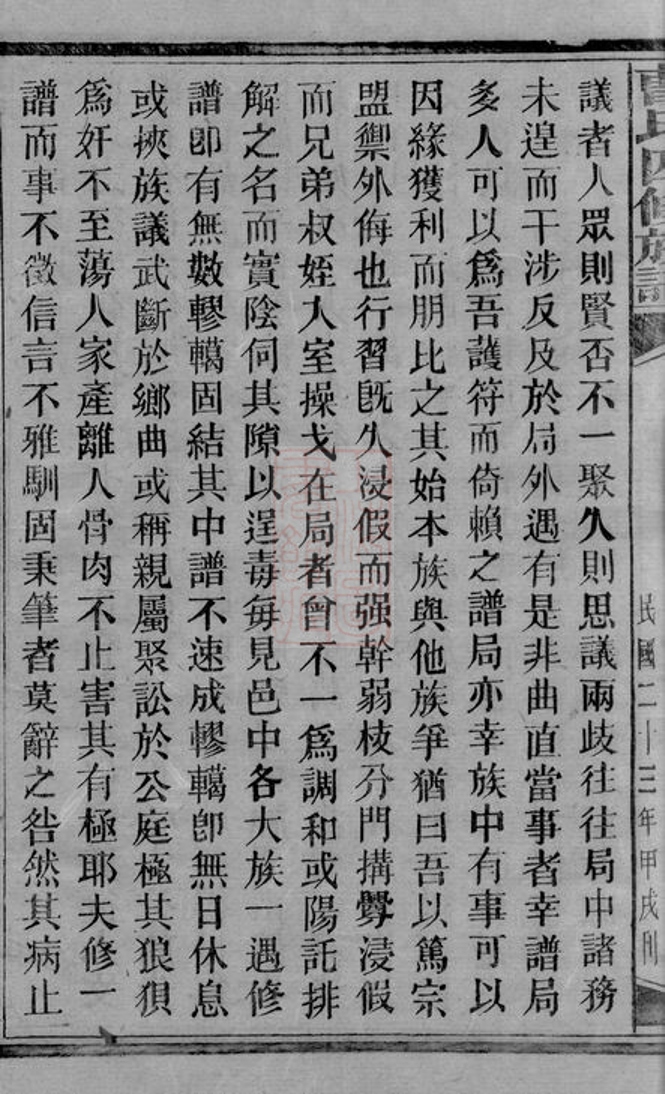 曹氏四修族譜
民國二十三年甲戌刊
議者人眾則賢否不一聚久則思議兩歧往往局中諸務
未遑而干涉反及於局外遇有是非曲直當事者幸譜局
多人可以爲吾護符而倚賴之譜局亦幸族中有事可以
因緣獲利而朋比之其始本族與他族爭猶曰吾以篤宗
盟禦外侮也行習旣久浸假而强幹弱枝分門搆釁浸假
而兄弟叔姪入室操戈在局者曾不一爲調和或陽託排
解之名而實陰伺其隙以逞毒每見邑中各大族一遇修
譜卽有無數轇轕固結其中譜不速成轇轕卽無日休息
或挾族議武斷於鄉曲或稱親屬聚訟於公庭極其狼狽
爲奸不至蕩人家產離人骨肉不止害其有極耶夫修一
譜而事不徵信言不雅馴固秉筆者莫辭之咎然其病止